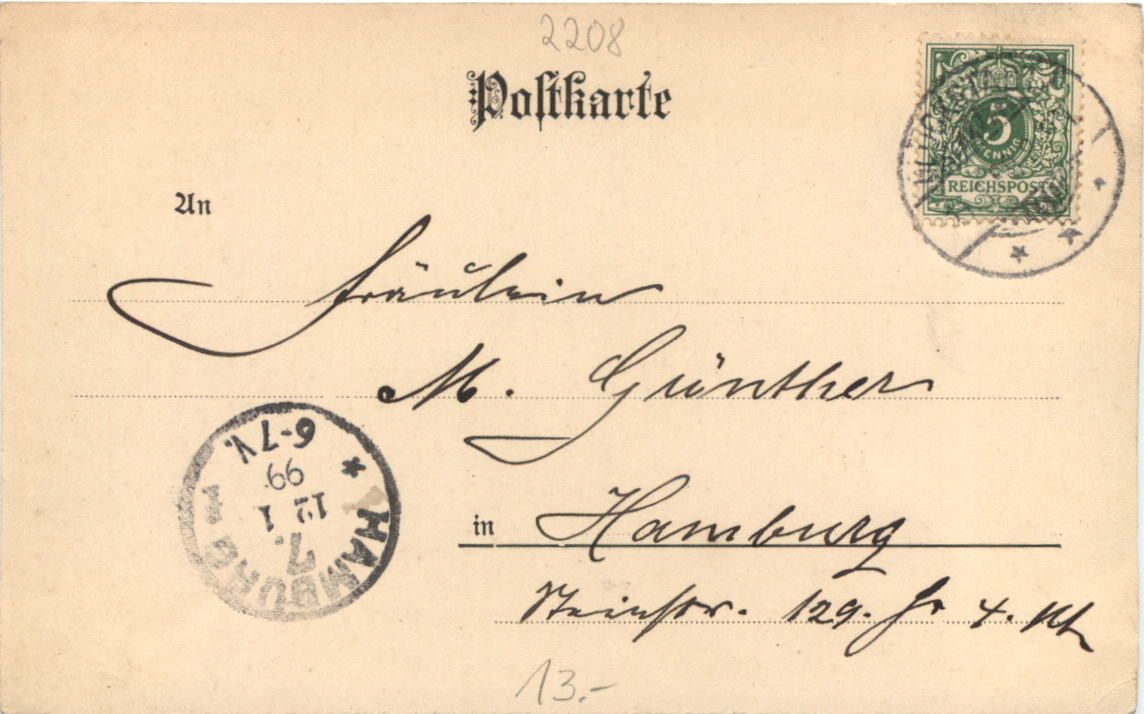 2208
Postkarte
5
PFENNIG
REICHSPOST
An
Fräulein
M. Günther
in Hamburg
Steinstr. 129. Hs 4. Kt
* HAMBURG 1 *
7.
12 1
99
6-7 V.
13.-